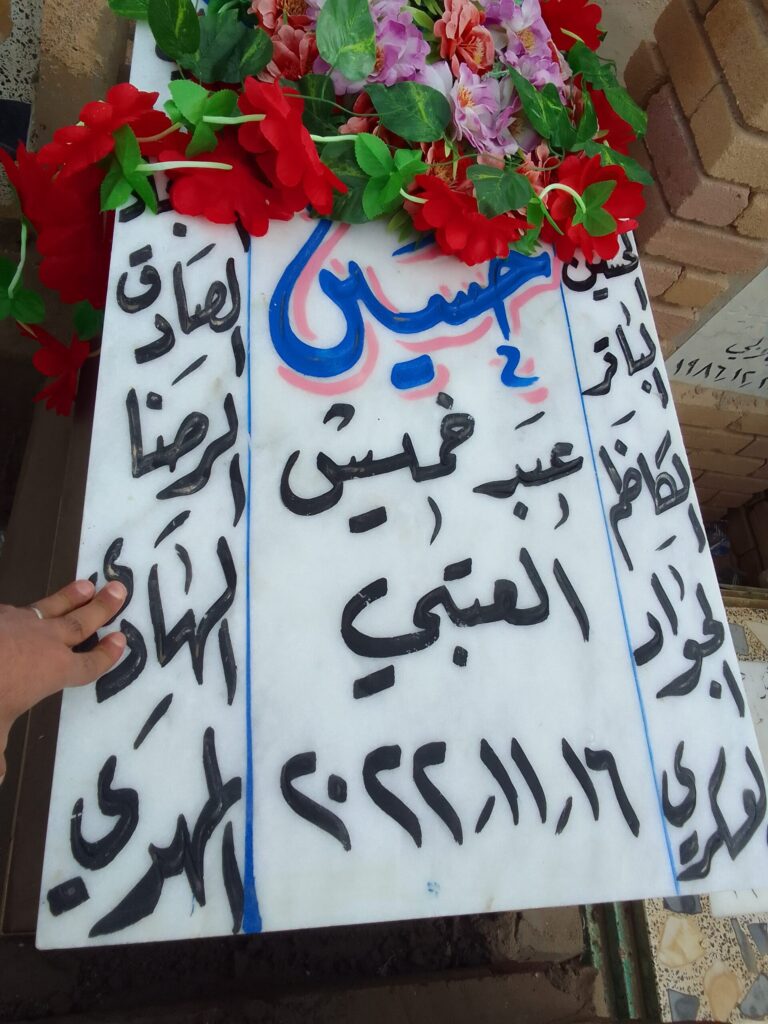 حسين
عبد خميس
العتبي
٢٠٢٢/١١/١٦
الحسين
الباقر
الكاظم
الجواد
العسكري
الصادق
الرضا
الهادي
المهدي